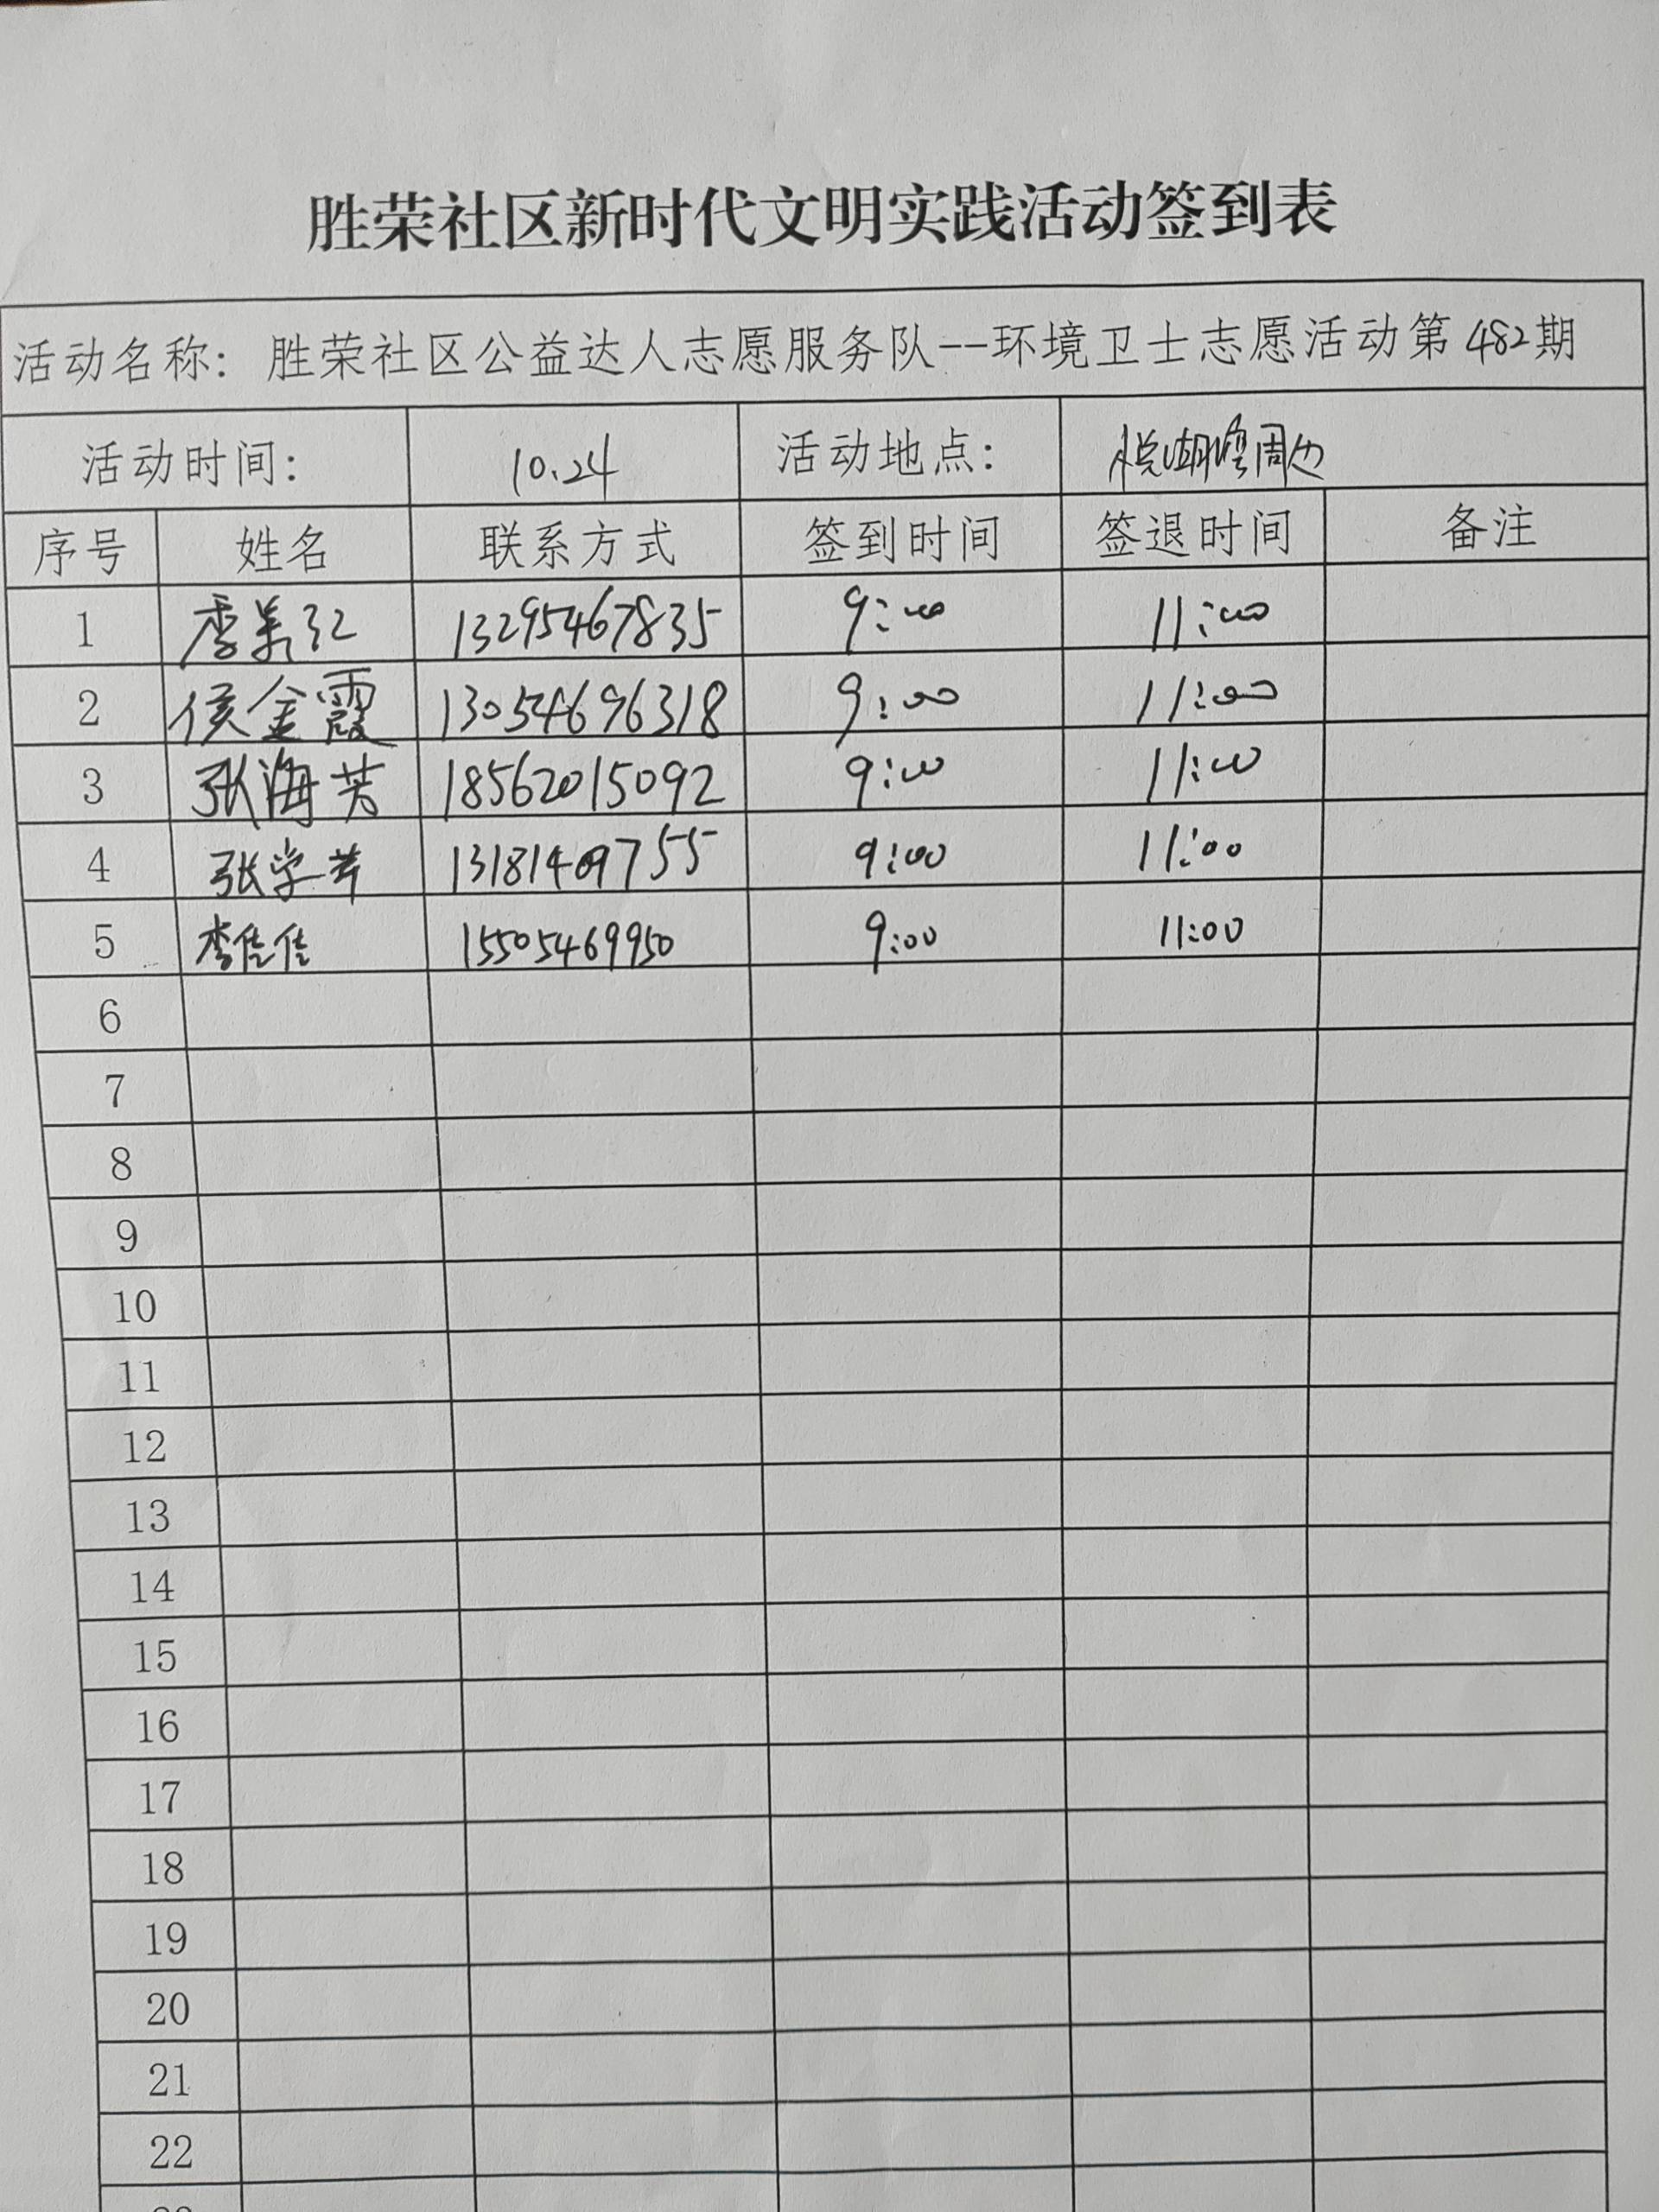 胜荣社区新时代文明实践活动签到表
活动名称：胜荣社区公益达人志愿服务队--环境卫士志愿活动第482期
活动时间： 10.24 活动地点： 悦湖湾周边
序号 姓名 联系方式 签到时间 签退时间 备注
1 李美红 13295467835 9:00 11:00
2 侯金霞 13054696318 9:00 11:00
3 张海芳 18562015092 9:00 11:00
4 张学 13181409755 9:00 11:00
5 李佳佳 15505469950 9:00 11:00
6
7
8
9
10
11
12
13
14
15
16
17
18
19
20
21
22